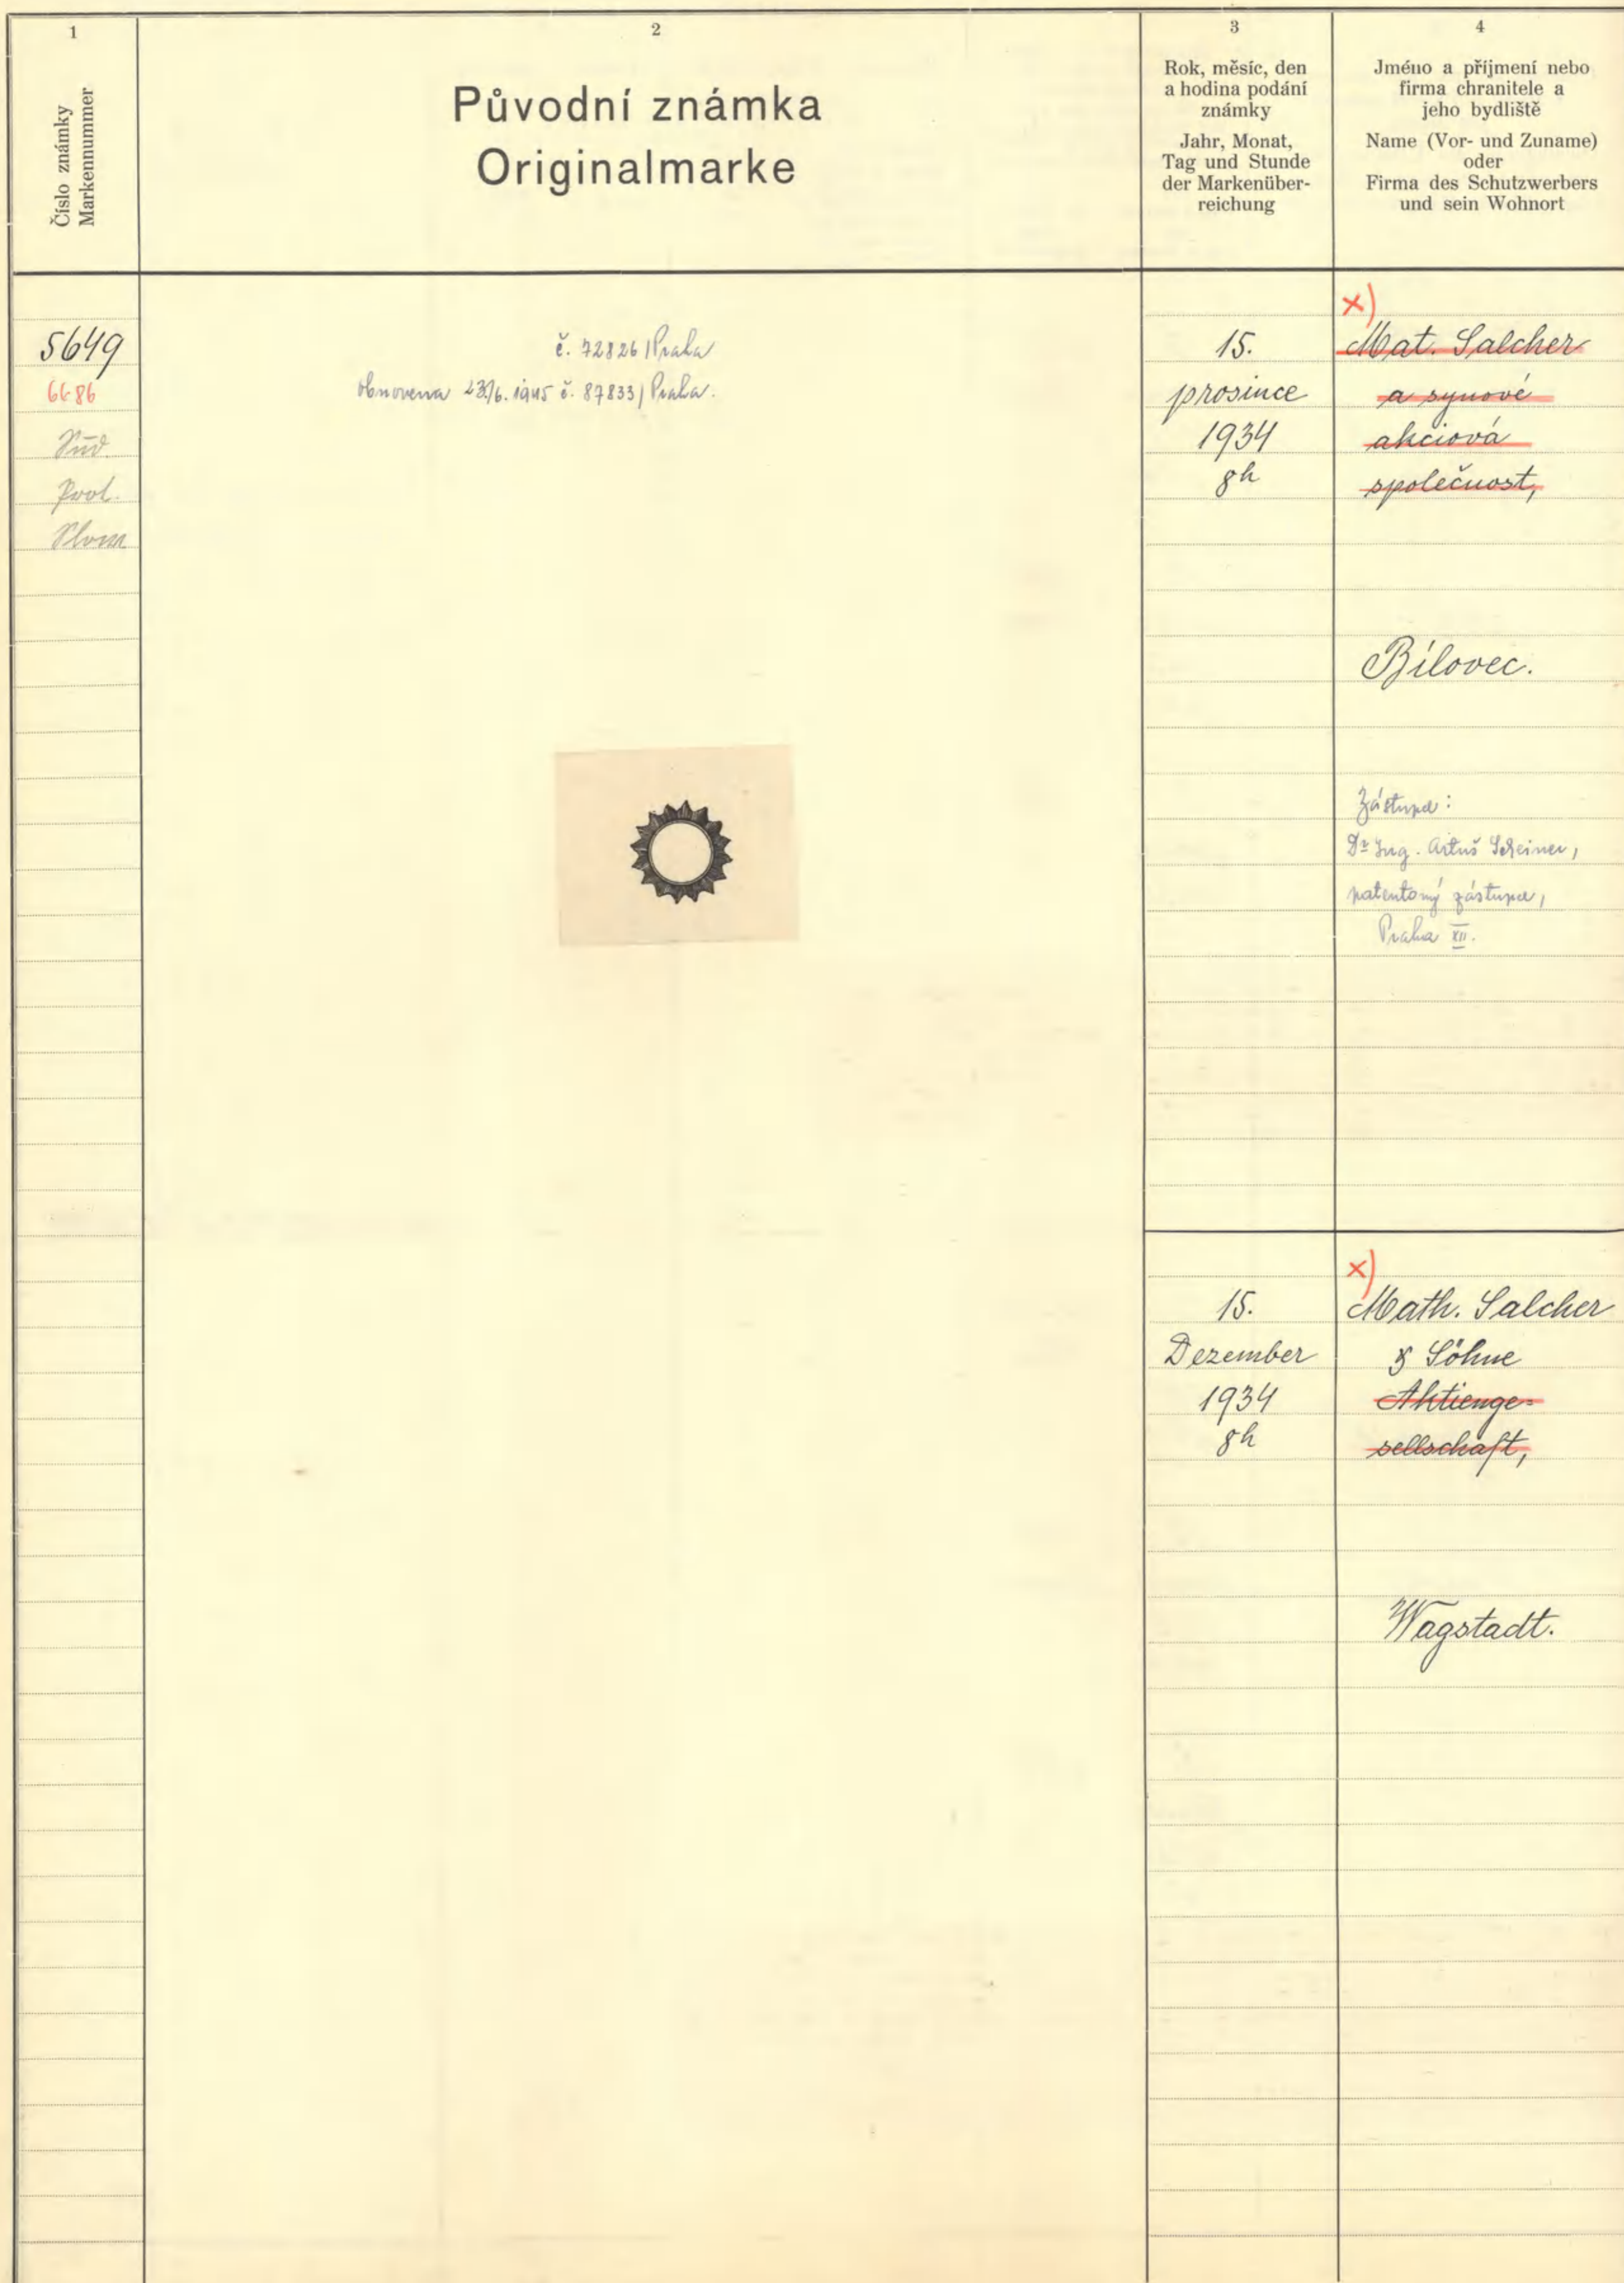 1
Číslo známky
Markennummer
2
Původní známka
Originalmarke
3
Rok, měsíc, den
a hodina podání
známky
Jahr, Monat,
Tag und Stunde
der Markenüber-
reichung
4
Jméno a příjmení nebo
firma chranitele a
jeho bydliště
Name (Vor- und Zuname)
oder
Firma des Schutzwerbers
und sein Wohnort
5649
6686
Süd.
Prot.
č. 72826/Praha
Obnovena 6. 1945 č. 87833/Praha.
15.
prosince
1934
8h
x)
Mat. Salcher
a synové
akciová
společnost,
Bílovec.
Zástupce:
Dr Ing. Artuš Scheiner,
patentový zástupce,
Praha XII.
15.
Dezember
1934
8h
x)
Math. Salcher
& Söhne
Aktienge=
sellschaft,
Wagstadt.